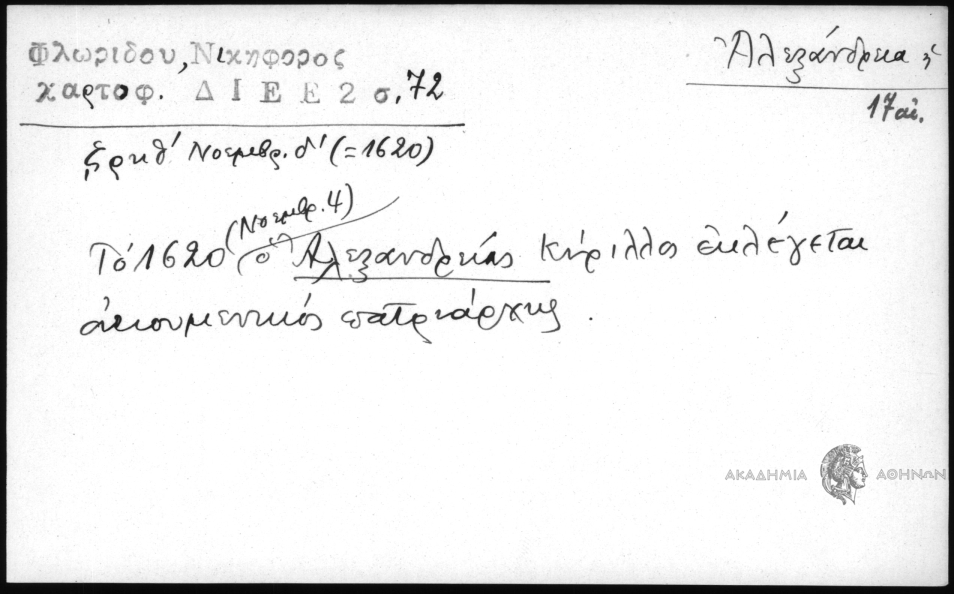 Φλωρίδου, Νικηφορος
χαρτοφ. ΔΙΕΕ 2 σ. 72
Ἀλεξάνδρεια ἡ
17 αἰ.
͵ζρκθ' Νοεμβρ. δ' (=1620)
(Νοεμβρ. 4)
Τό 1620 ὁ Ἀλεξανδρείας Κύριλλος ἐκλέγεται
οἰκουμενικός πατριάρχης.
ΑΚΑΔΗΜΙΑ ΑΘΗΝΩΝ